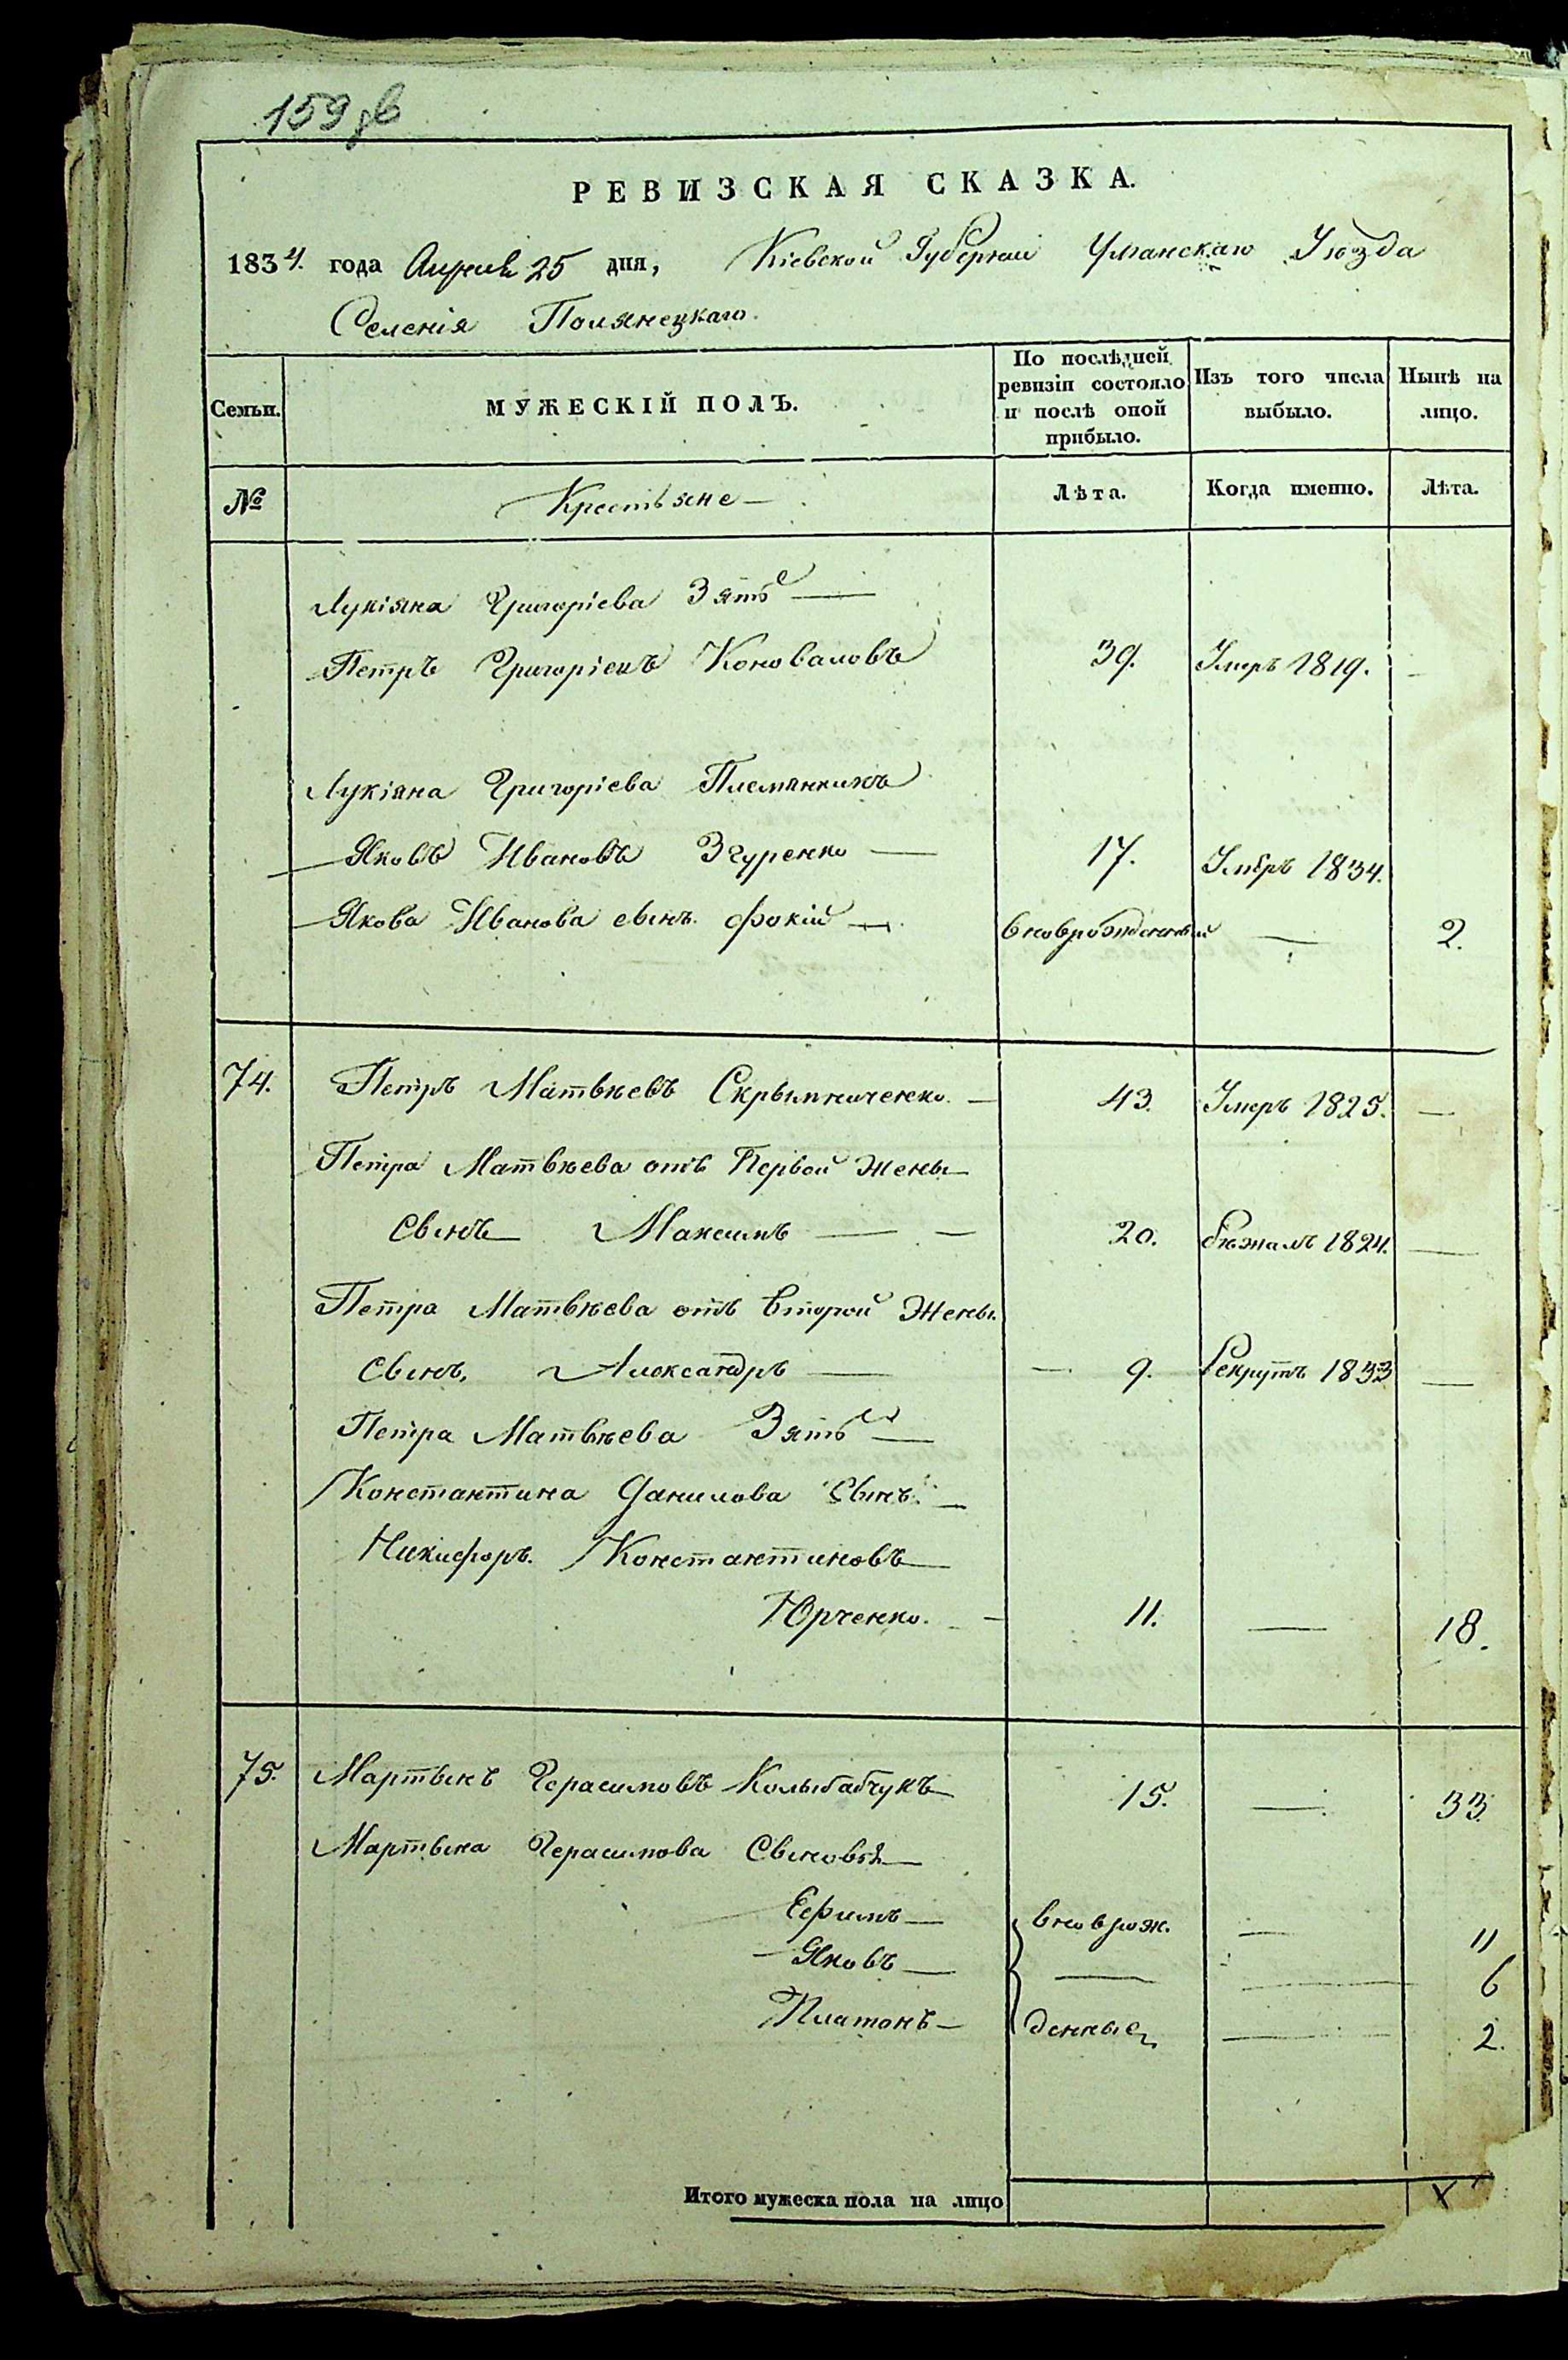 159 об
РЕВИЗСКАЯ СКАЗКА.
1834. года Апреля 25 дня, Кіевской Губерніи Уманскаго Уѣзда
Селенія Полянецкаго.
Семьи. МУЖЕСКІЙ ПОЛЪ. По послѣдней ревизіи состояло и послѣ оной прибыло. Изъ того числа выбыло. Нынѣ на лицо.
№ Крестьяне Лѣта. Когда именно. Лѣта.
Лукіяна Григоріева Зять —
Петръ Григоріевъ Коноваловъ 39. Умеръ 1819. —
Лукіяна Григоріева Племянникъ
Яковъ Ивановъ Згуренко — 17. Умеръ 1834.
Якова Иванова сынъ Фокій — вноврожденный — 2.
74. Петръ Матвѣевъ Скрыпниченко. — 43. Умеръ 1825. —
Петра Матвѣева отъ Первой Жены
Сынъ Максимъ — — 20. бѣжалъ 1824. —
Петра Матвѣева отъ второй Жены.
Сынъ, Александръ — — 9. Рекрутъ 1833 —
Петра Матвѣева Зять —
Константина Данилова Сынъ. —
Никифоръ. Константиновъ
Юрченко. — 11. — 18.
75. Мартынъ Герасимовъ Колыбабчукъ 15. — 33.
Мартына Герасимова Сыновья
Ефимъ — вноврож. — 11
Яковъ — — — 6
Платонъ — денные — 2.
Итого мужеска пола на лицо X